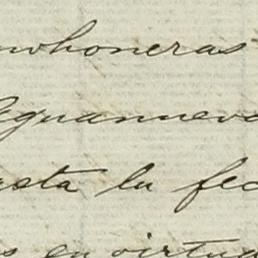 onhoneras
Aguanueva
asta la fec
s en virtud